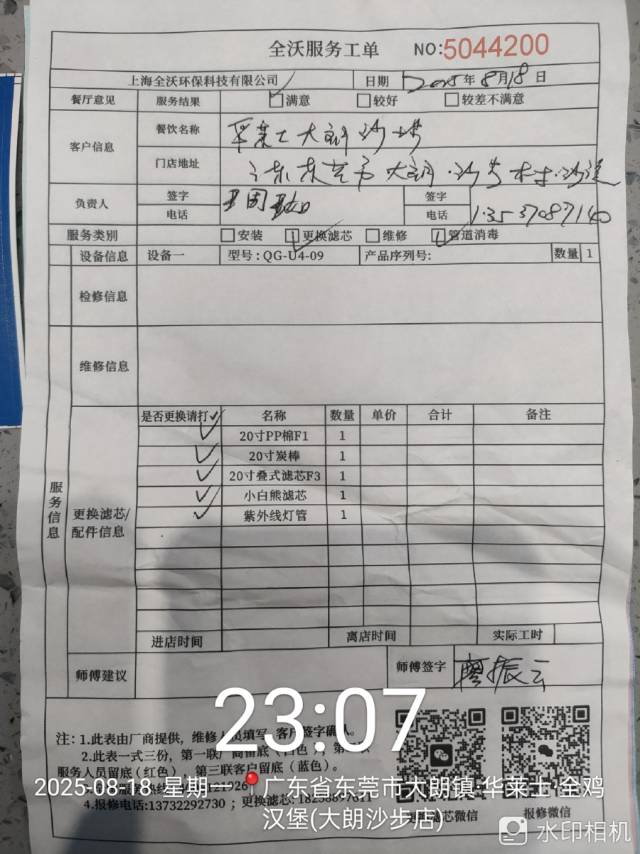 全沃服务工单 NO:5044200
上海全沃环保科技有限公司 日期 2025年8月18日
餐厅意见 服务结果 满意 较好 较差不满意
客户信息 餐饮名称 华莱士大朗沙步
门店地址 广东东莞市大朗
负责人 签字 签字
电话 电话 13537087140
服务类别 安装 更换滤芯 维修 管道消毒
设备信息 设备一 型号:QG-U4-09 产品序列号: 数量 1
检修信息
维修信息
服务信息
更换滤芯/配件信息
是否更换请打✓ 名称 数量 单价 合计 备注
✓ 20寸PP棉F1 1
✓ 20寸炭棒 1
✓ 20寸叠式滤芯F3 1
✓ 小白熊滤芯 1
✓ 紫外线灯管 1
进店时间 离店时间 实际工时
师傅建议 师傅签字 廖振云
23:07
注: 1.此表由厂商提供, 维修人员填写, 客户签字确认。
2.此表一式三份, 第一联厂商留底(白色)
服务人员留底(红色), 第三联客户留底(蓝色)。
2025-08-18 星期一 广东省东莞市大朗镇·华莱士·全鸡汉堡(大朗沙步店)
4.报修电话:13732292730; 更换滤芯:
滤芯微信 报修微信
水印相机